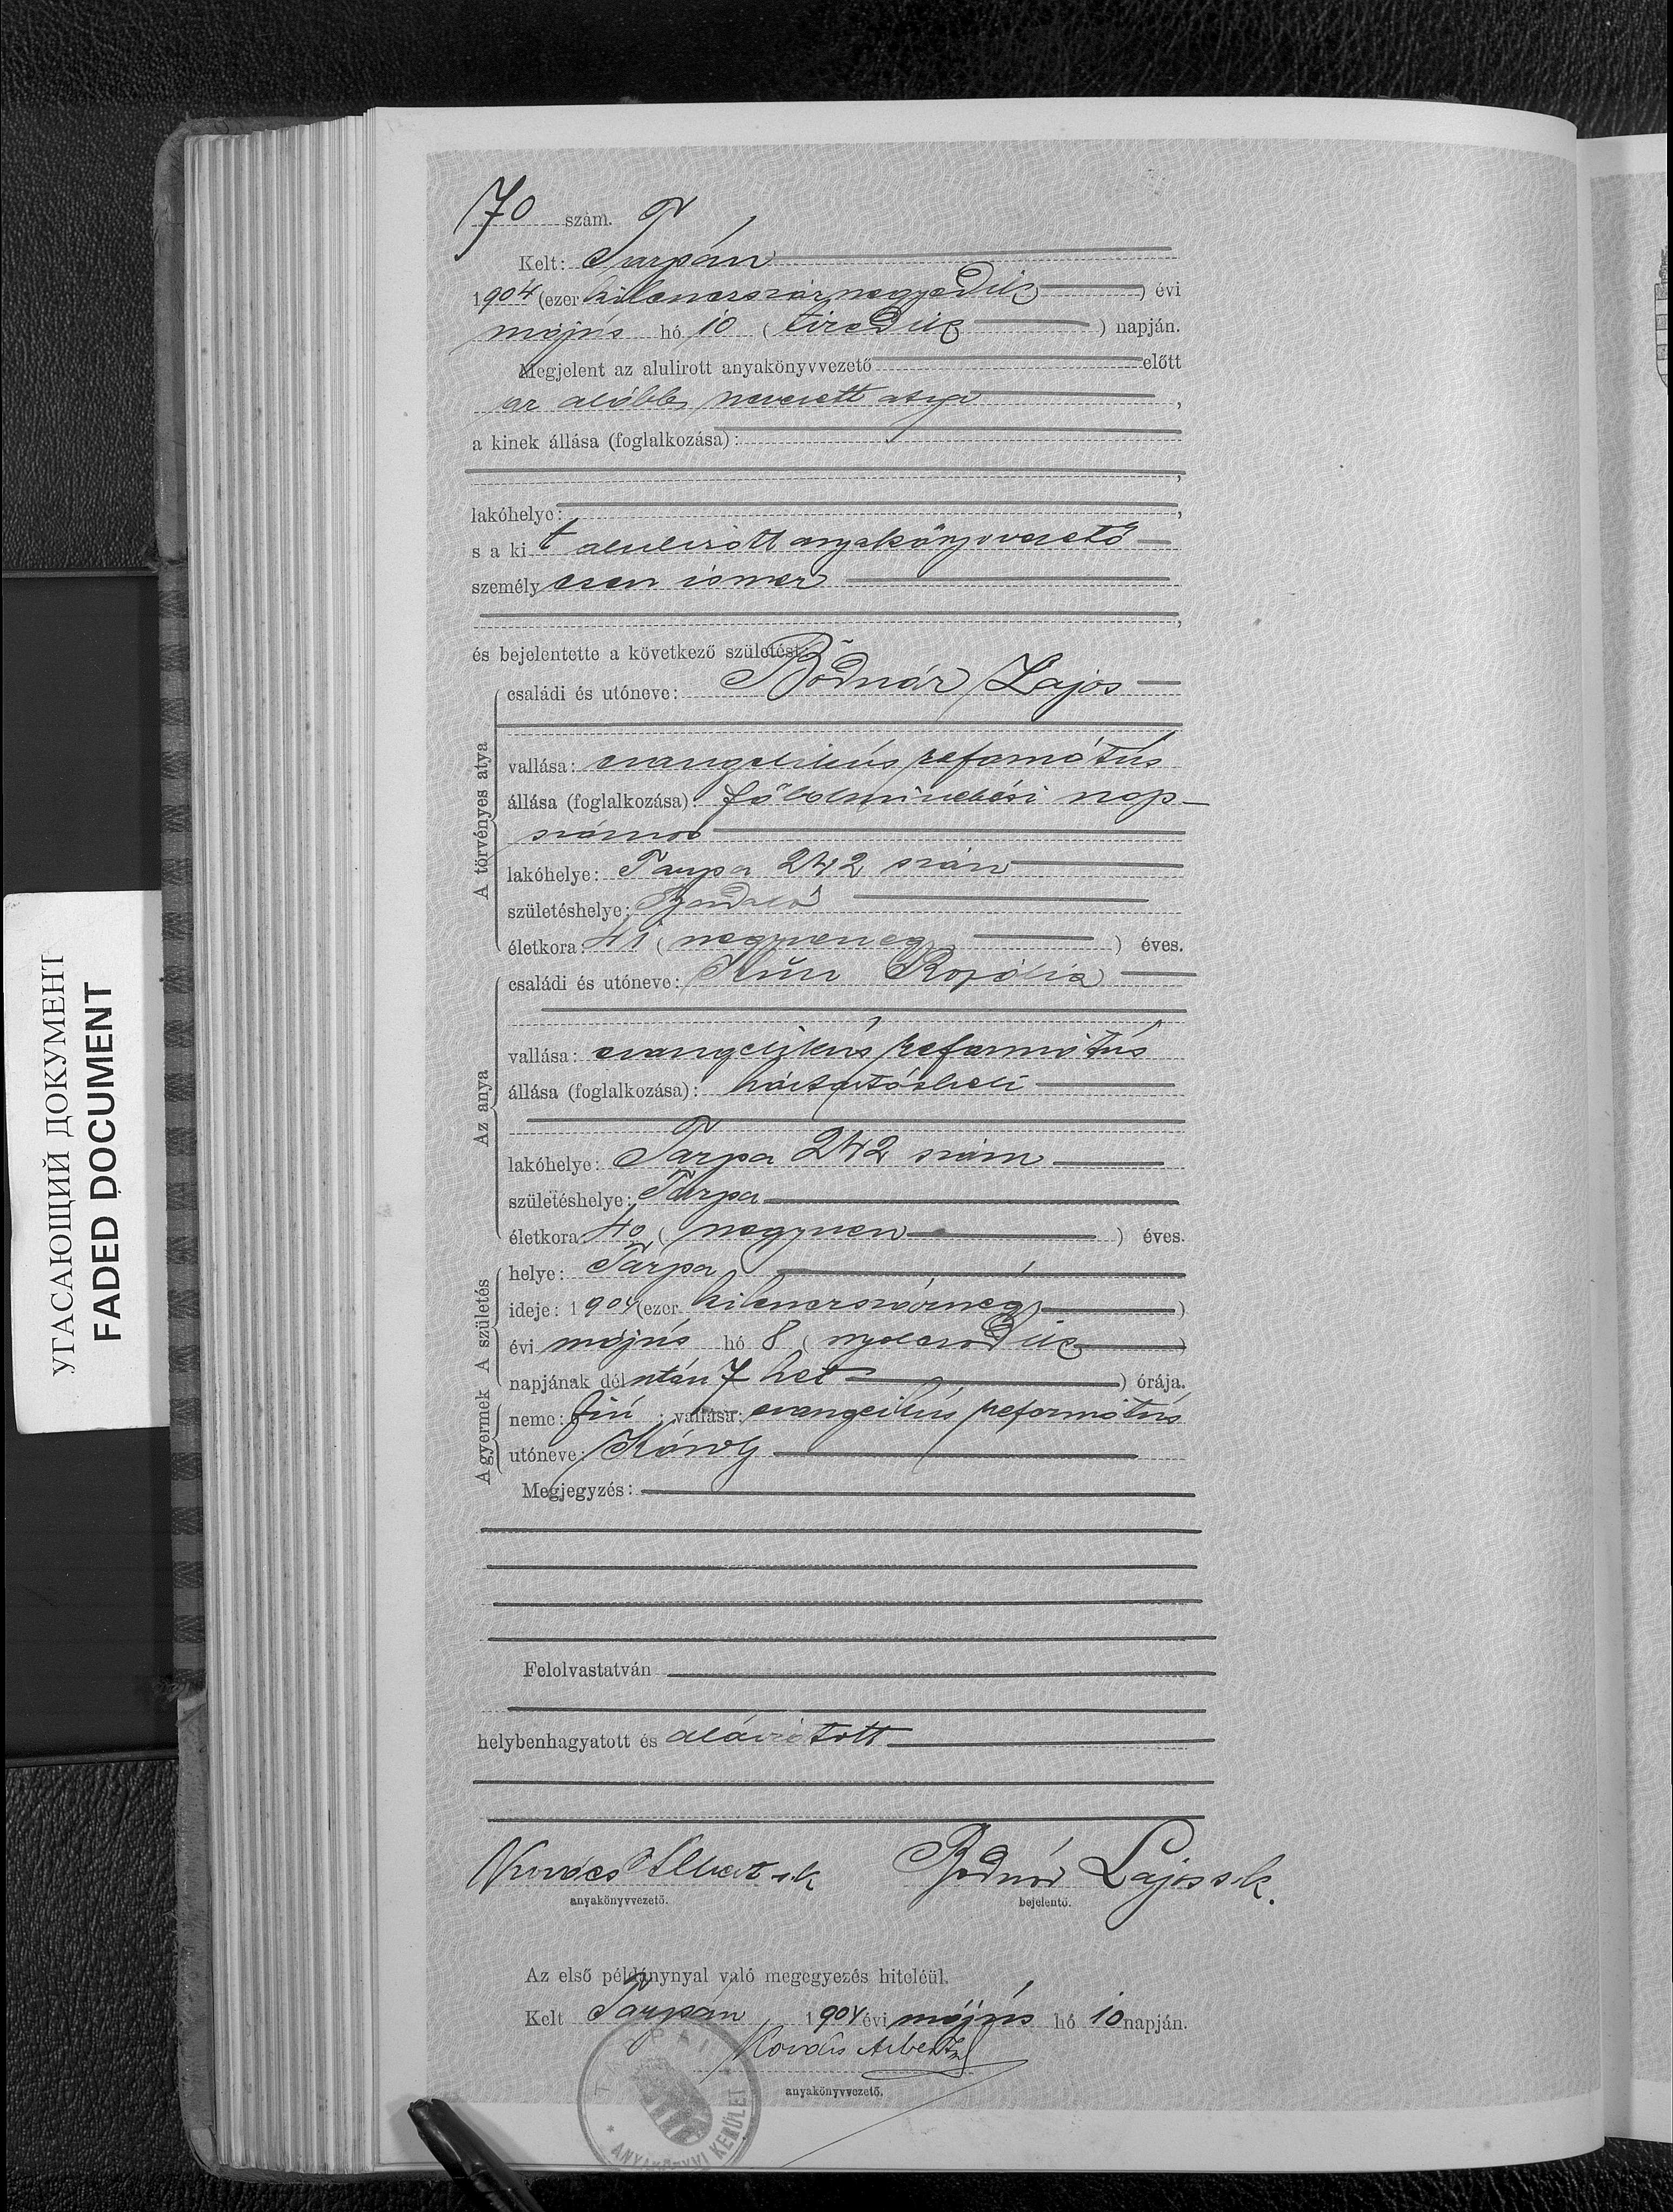 70 szám.
Kelt: Tarpán
1904 (ezer kilencszáznegyedik) évi
május hó 10 (tizedik) napján.
Megjelent az alulirott anyakönyvvezető előtt
az alább nevezett atya,
a kinek állása (foglalkozása):
lakóhelye:
s a kit alulirott anyakönyvvezető
személyesen ismer
és bejelentette a következő születést:
A törvényes atya
családi és utóneve: Bodnár Lajos
vallása: evangelikus református
állása (foglalkozása): földmivelési nap-
számos
lakóhelye: Tarpa 242 szám
születéshelye:
életkora: 41 (negyvenegy) éves.
Az anya
családi és utóneve: Rozália
vallása: evangelikus református
állása (foglalkozása): háztartásbeli
lakóhelye: Tarpa 242 szám
születéshelye: Tarpa
életkora 40 (negyven) éves.
A születés
helye: Tarpa
ideje: 1904 (ezer kilencszáznégy)
évi május hó 8 (nyolcadik)
napjának délután 7 (hét) órája.
A gyermek
neme: fiú; vallása: evangelikus református
utóneve: Károly
Megjegyzés:
Felolvastatván
helybenhagyatott és aláiratott
Kovács Albert s.k. Bodnár Lajos s.k.
anyakönyvvezető. bejelentő.
Az első példánynyal való megegyezés hiteléül.
Kelt Tarpán 1904 évi május hó 10 napján.
Kovács Albert
anyakönyvvezető.
TARPAI
* ANYAKÖNYVI KERÜLET
УГАСАЮЩИЙ ДОКУМЕНТ
FADED DOCUMENT